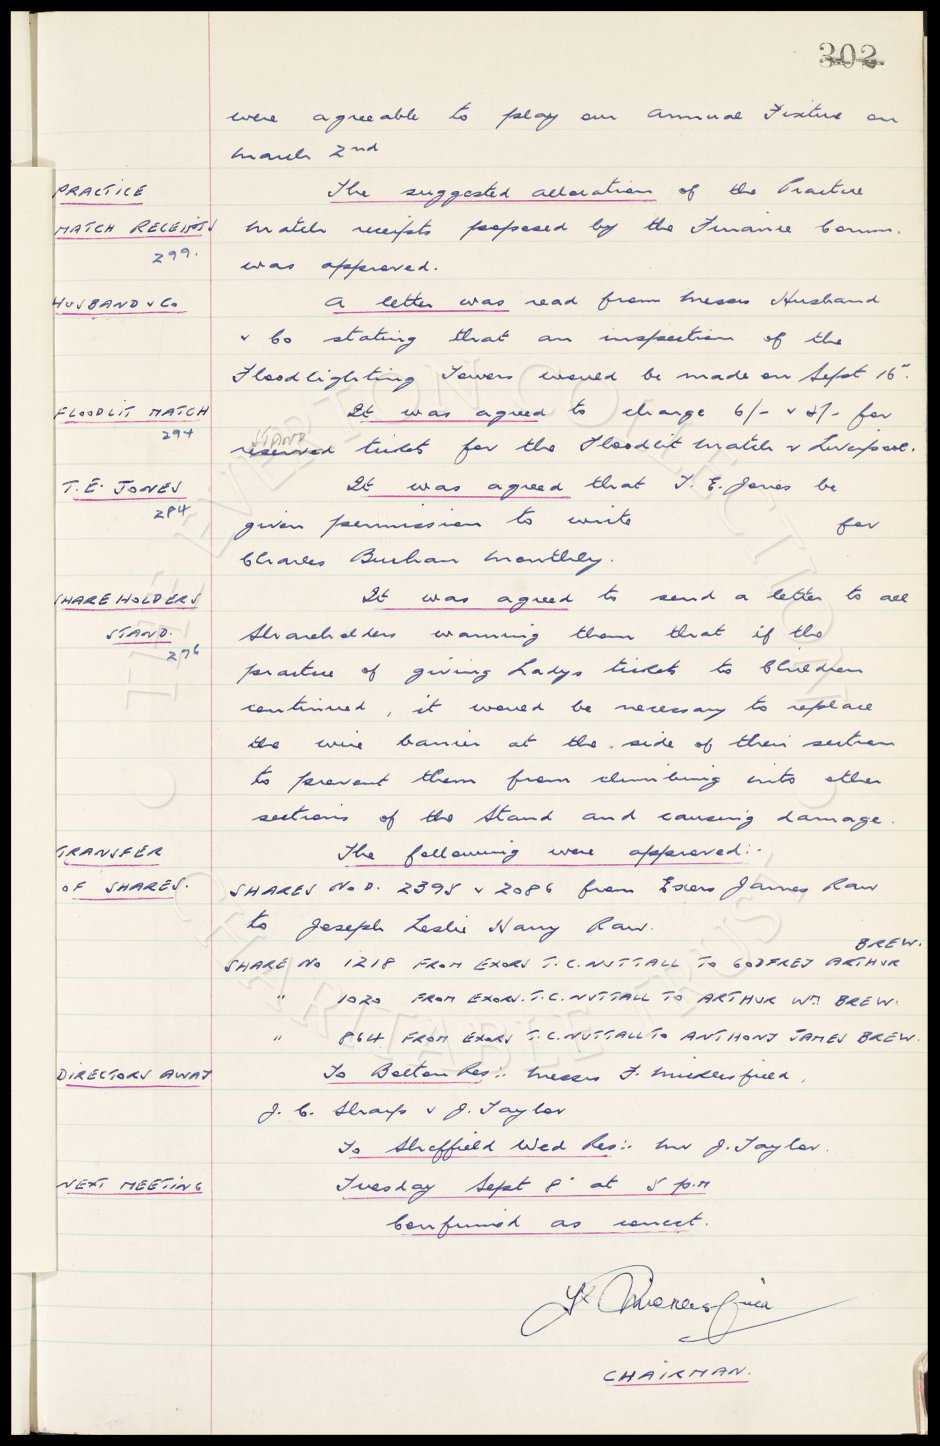 302
were agreeable to play our annual Fixture on
March 2nd
PRACTICE The suggested allocation of the Practice
MATCH RECEIPTS match receipts proposed by the Finance Comm.
299. was approved.
HUSBAND & Co. A letter was read from Messrs Husband
& Co stating that an inspection of the
Floodlighting Towers would be made on Sept 16".
FLOODLIT MATCH It was agreed to charge 6/- & 5/- for
294 STAND
reserved tickets for the Floodlit Match v Liverpool.
T.E. JONES It was agreed that T.E. Jones be
284 given permission to write for
Charles Buchan Monthly.
SHAREHOLDERS It was agreed to send a letter to all
STAND. Shareholders warning them that if the
276 practice of giving Ladys tickets to Children
continued, it would be necessary to replace
the wire barrier at the side of their section
to prevent them from climbing into other
sections of the Stand and causing damage.
TRANSFER The following were approved:-
OF SHARES. SHARES NoD. 2395 & 2086 from Exers James Raw
to Joseph Leslie Harry Raw.
BREW.
SHARE No 1218 FROM EXORS T.C. NUTTALL TO GODFREY ARTHUR
" 1020 FROM EXORS. T.C. NUTTALL TO ARTHUR WM BREW.
" 864 FROM EXORS T.C. NUTTALL TO ANTHONY JAMES BREW.
DIRECTORS AWAY To Bolton Res:- Messrs F. Micklesfield,
J.C. Sharp & J. Taylor
To Sheffield Wed Res:- Mr J. Taylor.
NEXT MEETING Tuesday Sept 8" at 5 p.m
Confirmed as correct.
CHAIRMAN.
© THE EVERTON COLLECTION
CHARITABLE TRUST